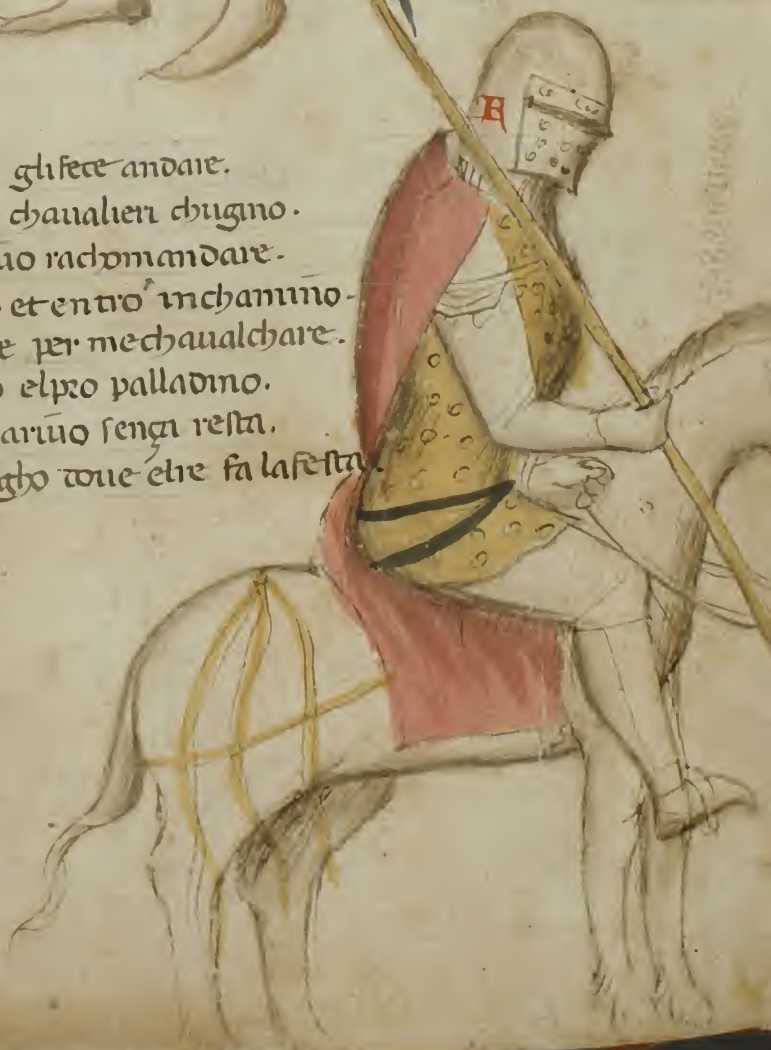 gli fece andare.
chaualieri chugino.
uo rachomandare.
et entro inchamino.
e per mechaualchare.
o elpro palladino.
ariuo sença resta.
gho doue elre fa lafesta.
A